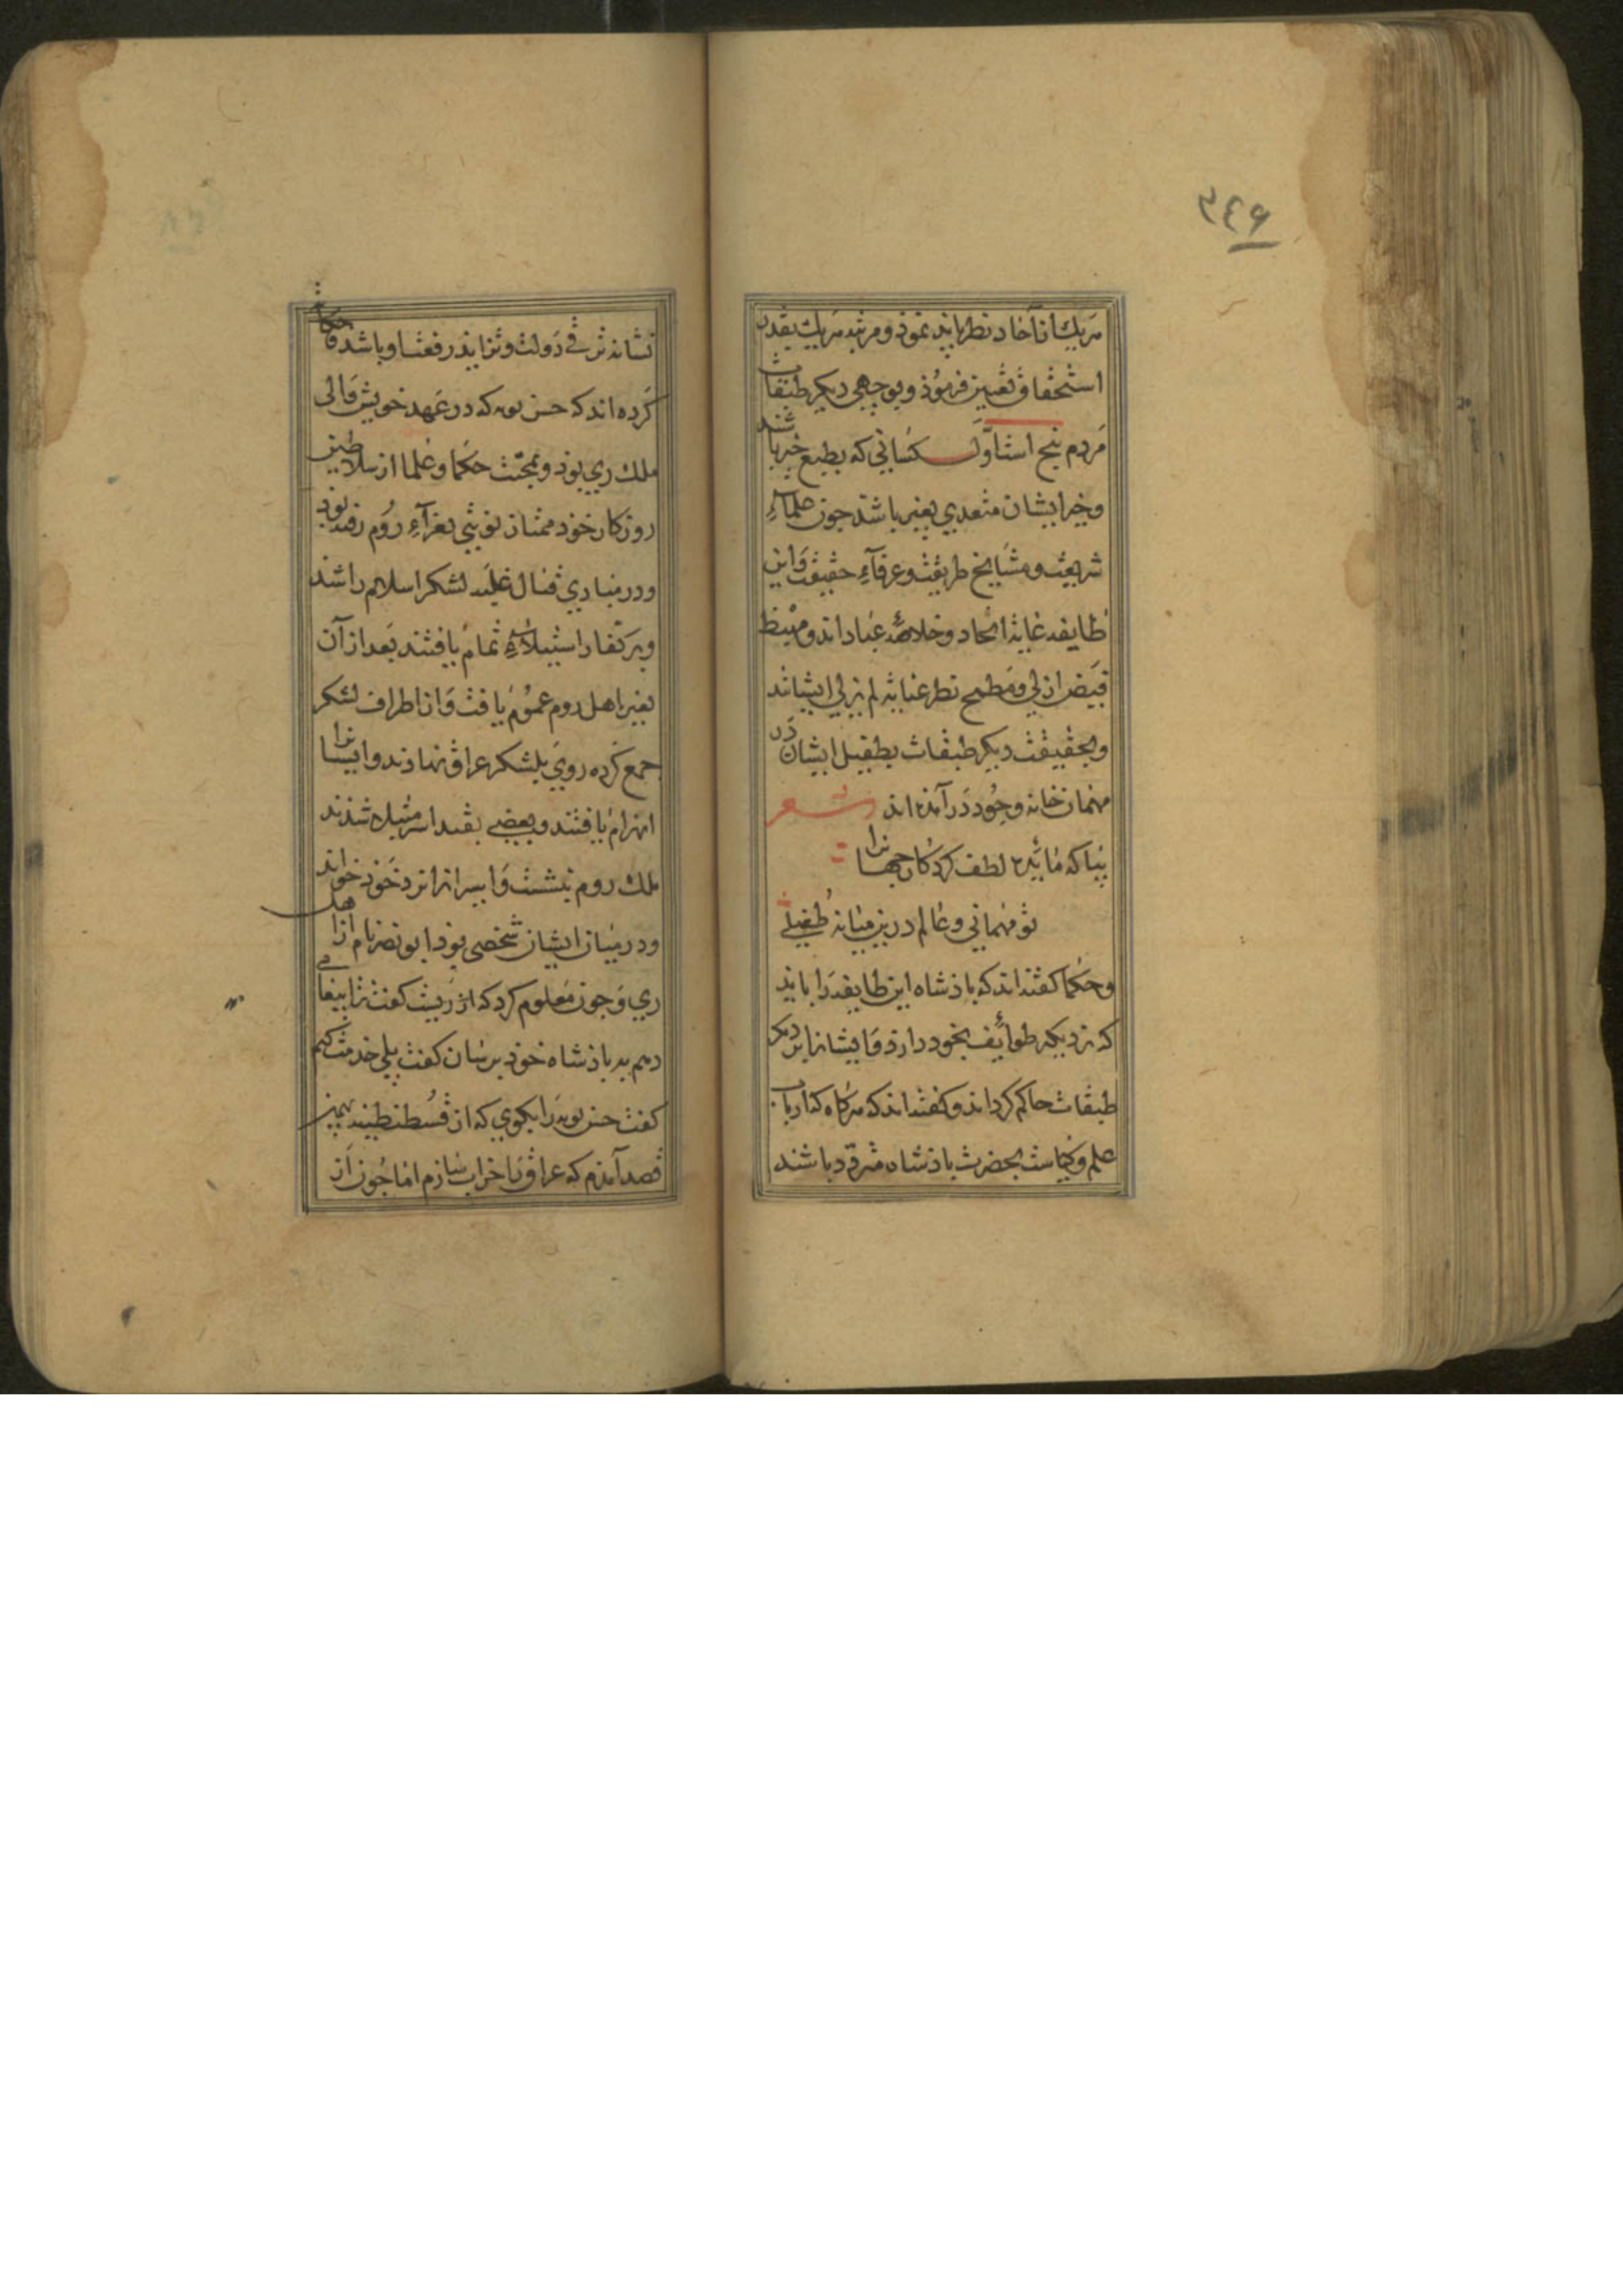 ٣٤۶
هریك از آحاد نظر باید نموذ و مرتبه هریك بقدر
استحقاق تعیین فرموذ و بوجهی دیكر طبقات
مردم پنج است اوّل كسانی كه بطبع خیر باشند
و خیر ایشان متعدی بغیر باشد جون علماءِ
شریعت و مشایخ طریقت و عرفآءِ حقیقت و این
طایفه غایة اتحاد و خلاصهٔ عباداند و مهبط
فیض ازلی و مطمح نظر عنایة لم یزلی ایشانند
و بحقیقت دیكر طبقات بطفیل ایشان در
مهمان خانه وجود درآمذه اند شعر
بیا كه مائیده لطف كردكار جهانرا
تو مهمانی و عالم درین میانه طفیلی
و حكما كفته اند كه باذشاه این طایفه را باید
كه نزدیكتر طوائف بخود دارذ و ایشانرا بر دیكر
طبقات حاكم كرداند و كفته اند كه هركاه كه ارباب
علم و كیاست بحضرت باذشاه متردّد باشند
نشانه ترقی دولت و تزاید رفعت او باشد حكایت
كرده اند كه حسن بویه كه در عهد خویش والی
ملك ری بوذ و بمحبّت حكما و علما از سلاطین
روزكار خوذ ممتاز نوبتی بغزآءِ روم رفته بود
و در مبادی قتال غلبه لشكر اسلام را شد
و بر كفار استیلاءِ تمام یافتند بعد از آن
نفیر اهل روم عموم یافت و از اطراف لشكر
جمع كرده روی بلشكر عراق نهادند و ایشانرا
انهزام یافتند و بعضی بقید اسر مبتلا شذند
ملك روم بنشست و اسیرانرا نزد خوذ خواند
و در میان ایشان شخصی بوذ ابو نصر نام از اهل
ری و جون معلوم كرد كه از ریست كفت ترا پیغامی
دهم به باذشاه خوذ برسان كفت بلی خدمت كنم
كفت حسن بویه را بكوی كه از قسطنطینیه بهمین
قصد آمذم كه عراق را خراب سازم اما جون از